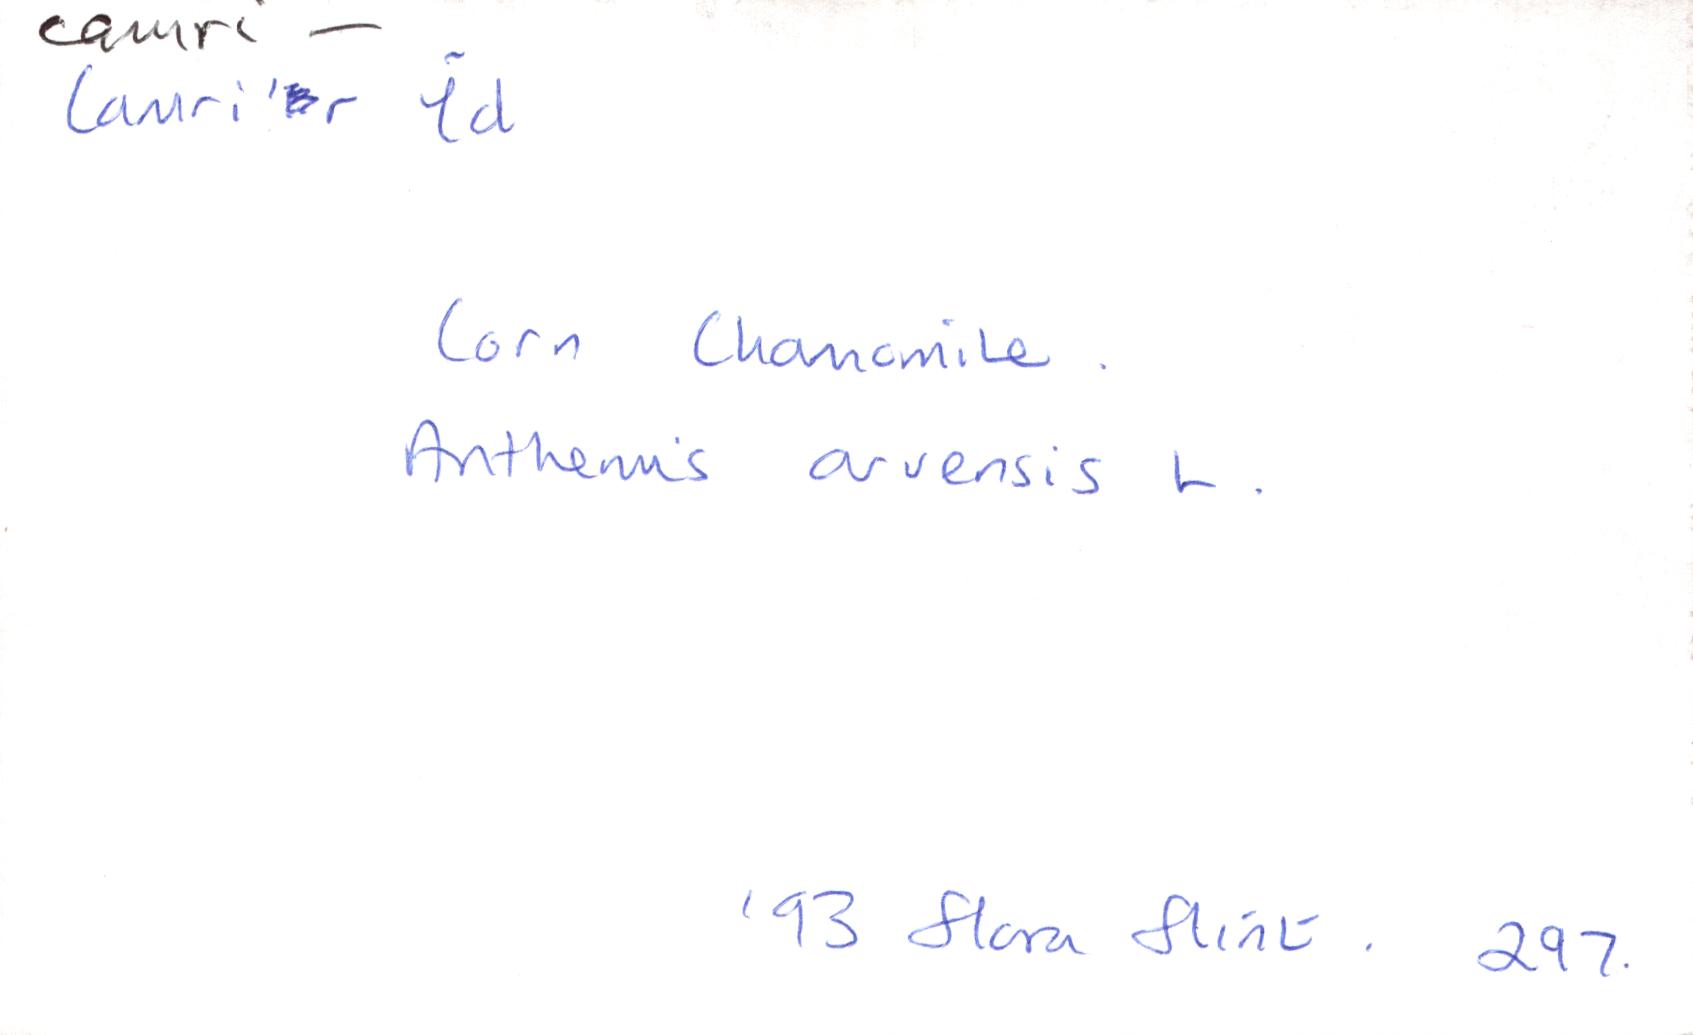 camri —
Camri'r ŷd
Corn Chamomile.
Anthemis arvensis L.
'93 Flora Flint. 297.